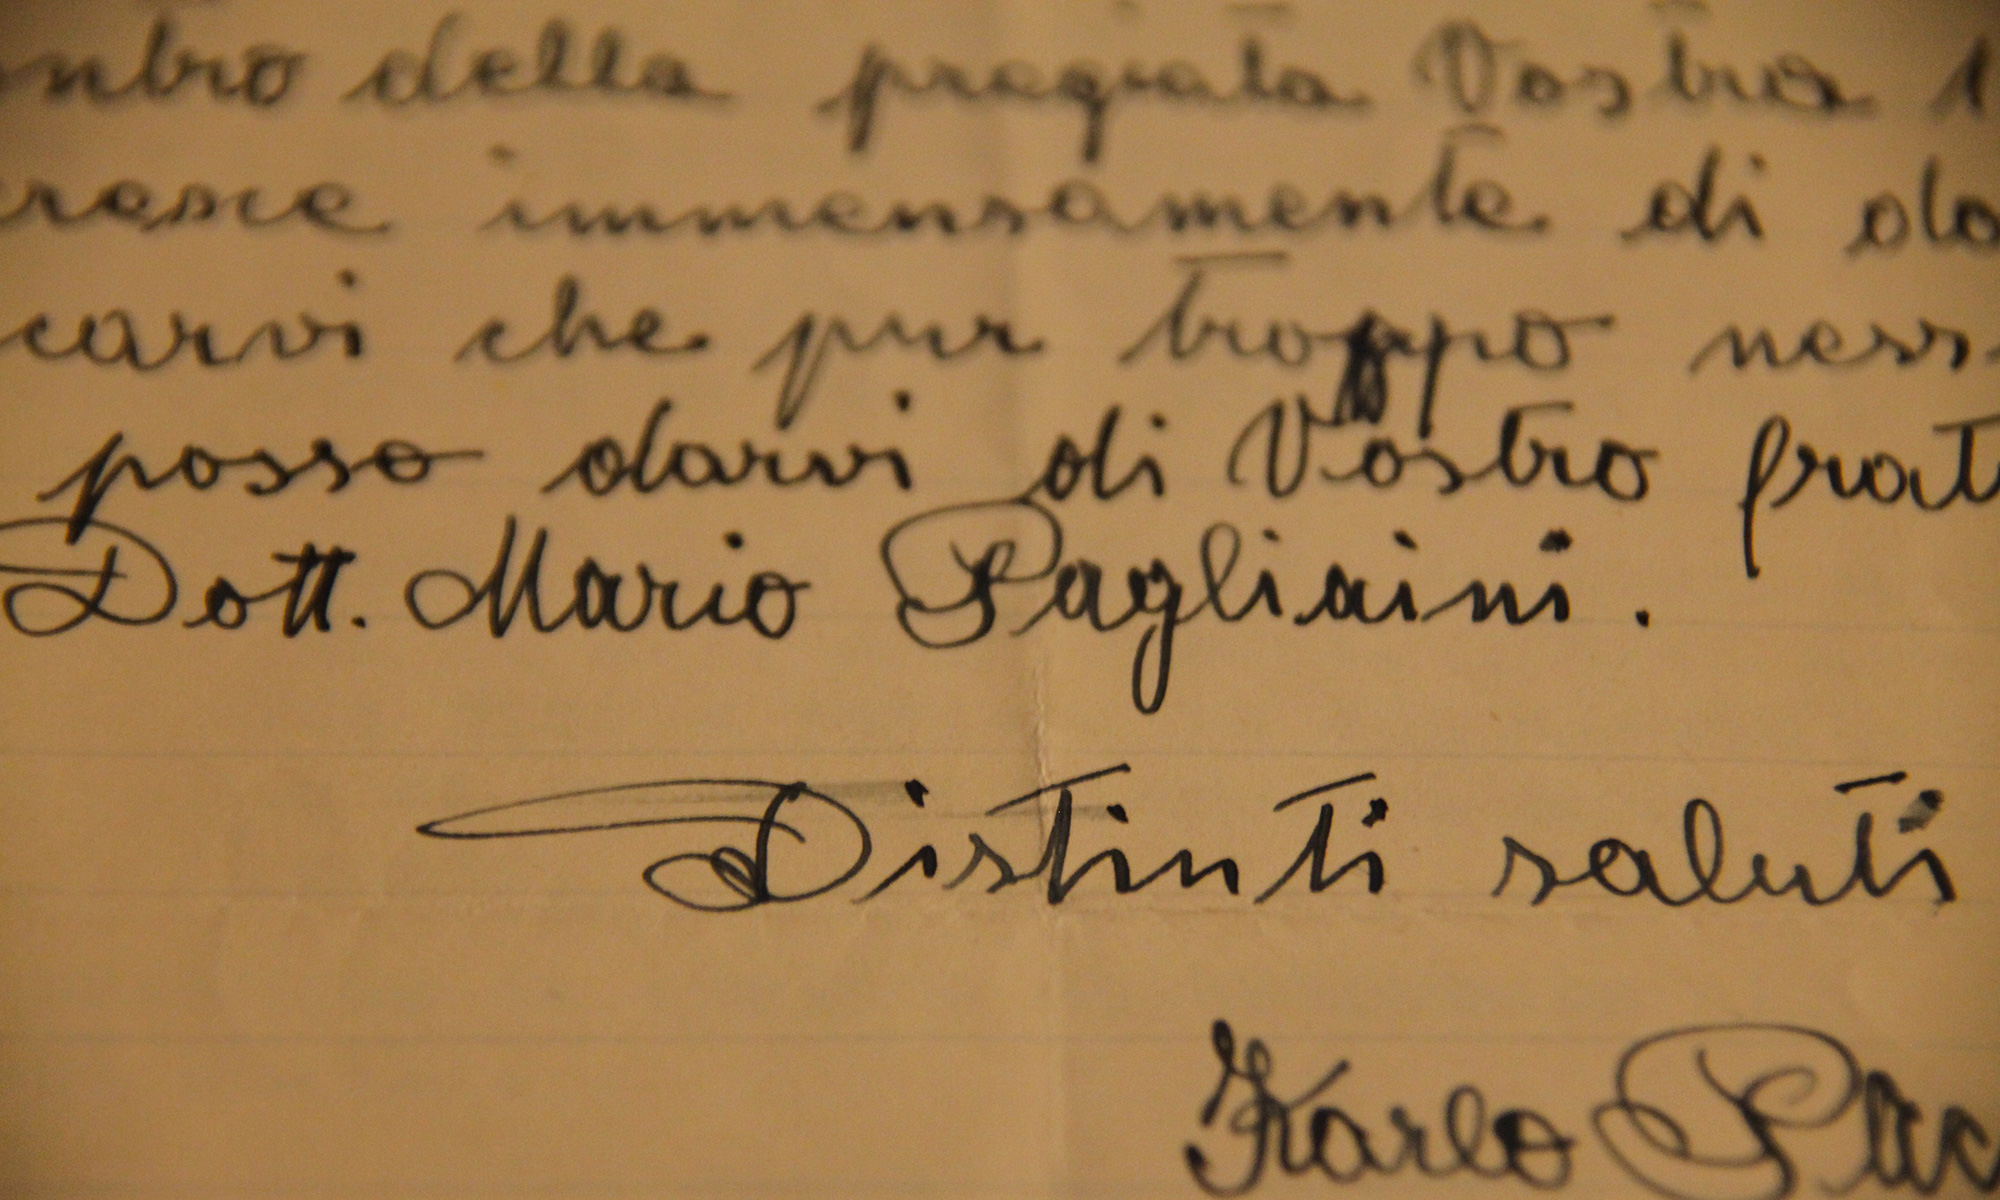 ntro della pregiata Vostra
cresce immensamente di do
carvi che pur troppo ness
posso darvi di Vostro frat
Dott. Mario Pagliaini.
Distinti saluti
Karlo Pac